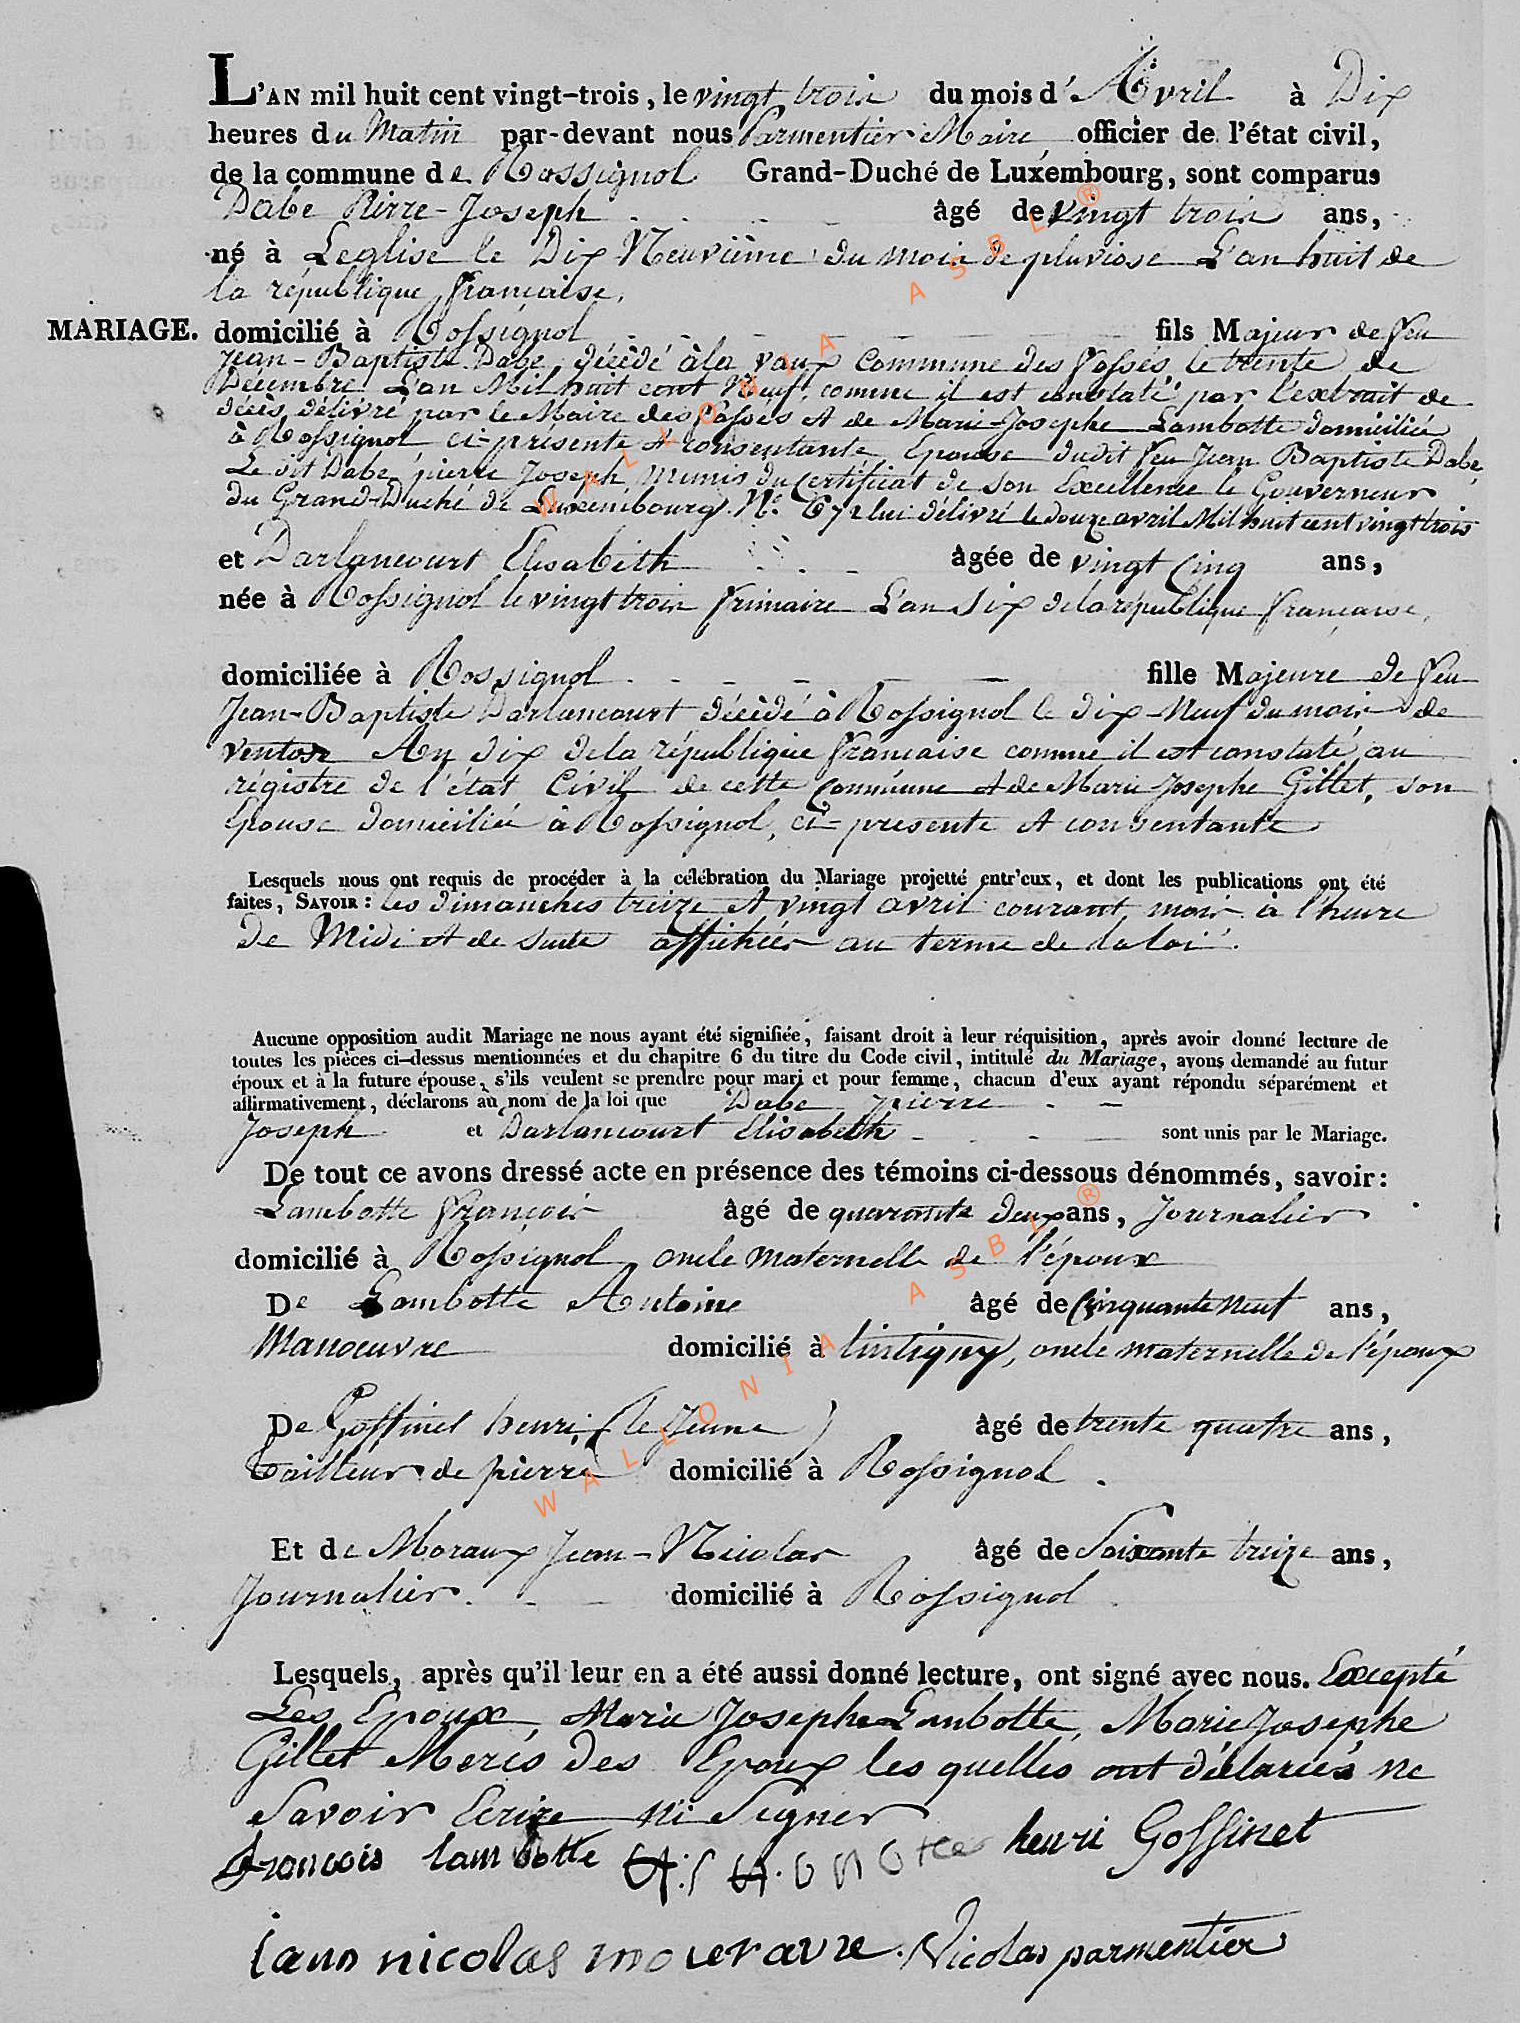 L'AN mil huit cent vingt-trois, le vingt trois du mois d'Avril à Dix
heures du Matin par-devant nous Parmentier Maire officier de l'état civil,
de la commune de Rossignol Grand-Duché de Luxembourg, sont comparus
Dabe Pierre-Joseph âgé de vingt trois ans,
né à Leglise le Dix Neuvième du mois de pluviose L'an huit de
la république française,
MARIAGE. domicilié à Rossignol fils Majeur de feu
Jean-Baptiste Dabe, décédé à la vaux Commune des fossés, le trente de
Décembre L'an Mil huit cent Neuf, comme il est constaté par l'extrait de
décès délivré par le Maire des fossés et de Marie-Josephe Lambotte domiciliée
à Rossignol ci-présente et consentante, Epouse dudit feu Jean Baptiste Dabe,
Le dit Dabe pierre Joseph, Munis du Certificat de son Excellence le Gouverneur
du Grand-Duché de Luxembourg. No. lui délivré le douze avril Mil huit cent vingt trois
et Darlancourt Elisabeth âgée de vingt Cinq ans,
née à Rossignol le vingt trois frimaire L'an Six de la république française,
domiciliée à Rossignol fille Majeure de feu
Jean-Baptiste Darlancourt décédé à Rossignol le dix-Neuf du mois de
ventose An dix de la république francaise comme il est constaté, au
régistre de l'état Civil de cette Commune et de Marie Josephe Gillet, son
Epouse domiciliée à Rossignol, ci-presente et consentante
Lesquels nous ont requis de procéder à la célébration du Mariage projetté entr'eux, et dont les publications ont été
faites, SAVOIR : les dimanches treize et vingt avril courant mois à l'heure
de Midi et de suite affichées au terme de la loi.
Aucune opposition audit Mariage ne nous ayant été signifiée, faisant droit à leur réquisition, après avoir donné lecture de
toutes les pièces ci-dessus mentionnées et du chapitre 6 du titre du Code civil, intitulé du Mariage, avons demandé au futur
époux et à la future épouse, s'ils veulent se prendre pour mari et pour femme, chacun d'eux ayant répondu séparément et
affirmativement, déclarons au nom de la loi que Dabe pierre
Joseph et Darlancourt Elisabeth sont unis par le Mariage.
De tout ce avons dressé acte en présence des témoins ci-dessous dénommés, savoir:
Lambotte françois âgé de quarante deux ans, Journalier
domicilié à Rossignol oncle maternelle de l'époux
De Lambotte Antoine âgé de Cinquante neuf ans,
Manoeuvre domicilié à tintigny, oncle maternelle de l'époux
De Goffinet henri (le jeune) âgé de trente quatre ans,
tailleur de pierre domicilié à Rossignol.
Et de Moraux Jean-Nicolas âgé de Soixante treize ans,
Journalier. domicilié à Rossignol
Lesquels, après qu'il leur en a été aussi donné lecture, ont signé avec nous. Excepté
Les Epoux, Marie Josephe Lambotte, Marie Josephe
Gillet Merés des Epoux les quelles ont déclarées ne
Savoir Ecrire ni Signer
françois lambotte henri Goffinet
nicolas Nicolas parmentier
WALLONIA ASBL ®
WALLONIA ASBL ®